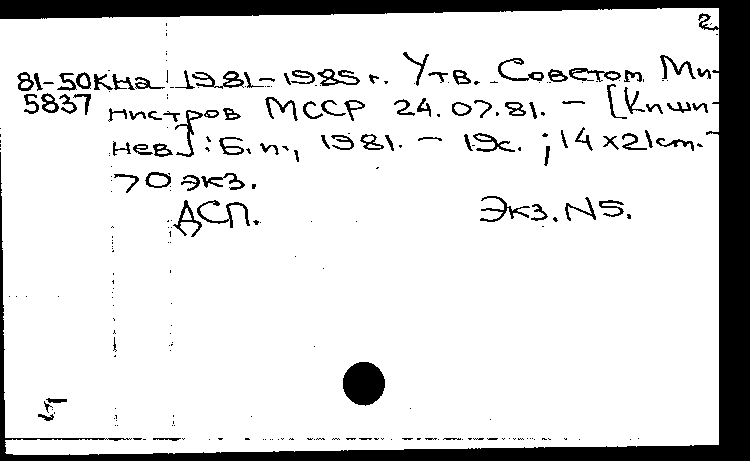 2.
81-50кна 1981-1985 г. Утв. Советом Ми-
5837 нистров МССР 24.07.81. - [Киши-
нев]: Б.и., 1981. - 19с. ; 14×21cm. -
70 экз.
ДСП. Экз. N5.
5